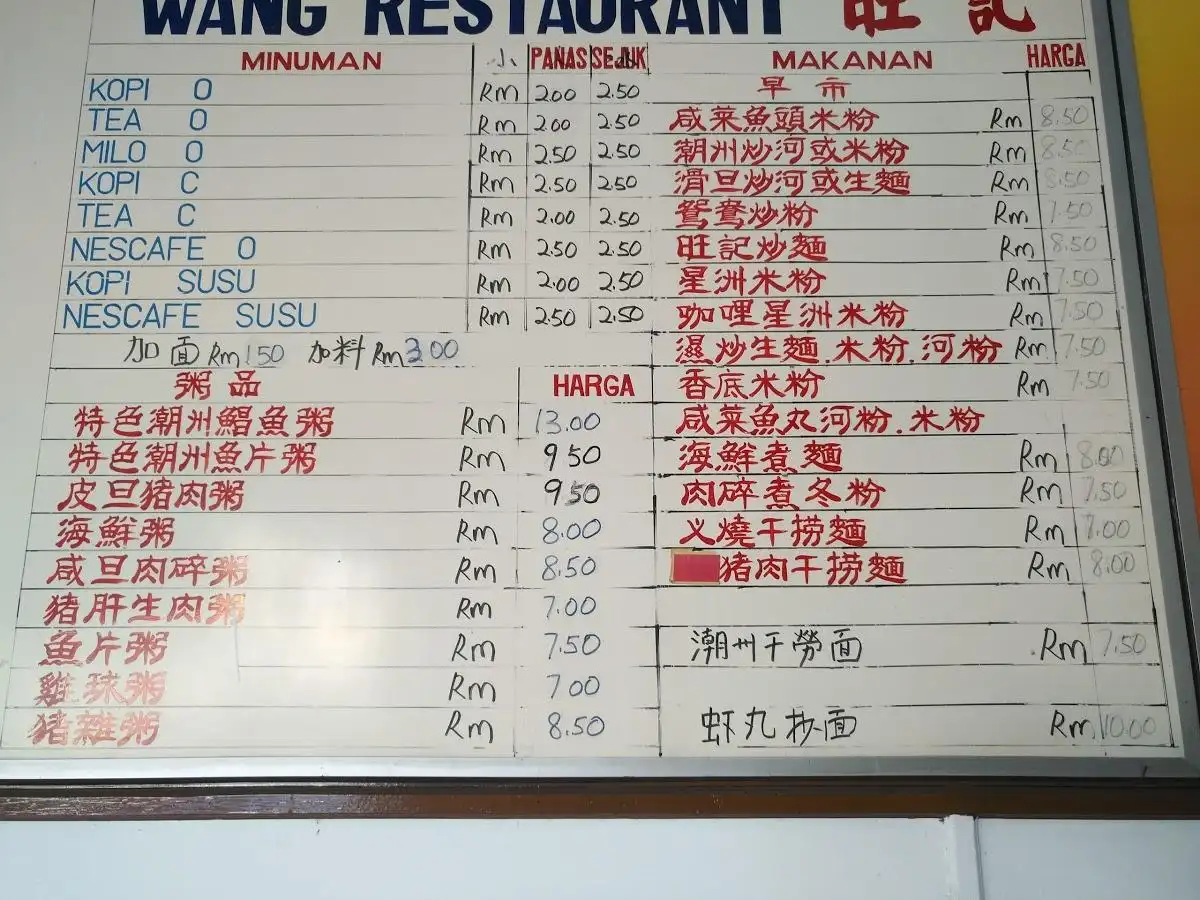 WANG RESTAURANT 旺記
MINUMAN 小 PANAS SEJUK
KOPI O Rm 2.00 2.50
TEA O Rm 2.00 2.50
MILO O Rm 2.50 2.50
KOPI C Rm 2.50 2.50
TEA C Rm 2.00 2.50
NESCAFE O Rm 2.50 2.50
KOPI SUSU Rm 2.00 2.50
NESCAFE SUSU Rm 2.50 2.50
加面 Rm 1.50 加料 Rm 3.00
粥品 HARGA
特色潮州鯧魚粥 Rm 13.00
特色潮州魚片粥 Rm 9.50
皮旦猪肉粥 Rm 9.50
海鮮粥 Rm 8.00
咸旦肉碎粥 Rm 8.50
猪肝生肉粥 Rm 7.00
魚片粥 Rm 7.50
雞球粥 Rm 7.00
猪雜粥 Rm 8.50
MAKANAN HARGA
早市
咸菜魚頭米粉 Rm 8.50
潮州炒河或米粉 Rm 8.50
滑旦炒河或生麵 Rm 8.50
鴛鴦炒粉 Rm 7.50
旺記炒麵 Rm 8.50
星洲米粉 Rm 7.50
咖哩星洲米粉 Rm 7.50
濕炒生麵.米粉.河粉 Rm 7.50
香底米粉 Rm 7.50
咸菜魚丸河粉.米粉
海鮮煮麵 Rm 8.00
肉碎煮冬粉 Rm 7.50
义燒干捞麵 Rm 7.00
猪肉干捞麵 Rm 8.00
潮州干勞面 Rm 7.50
虾丸抄面 Rm 10.00